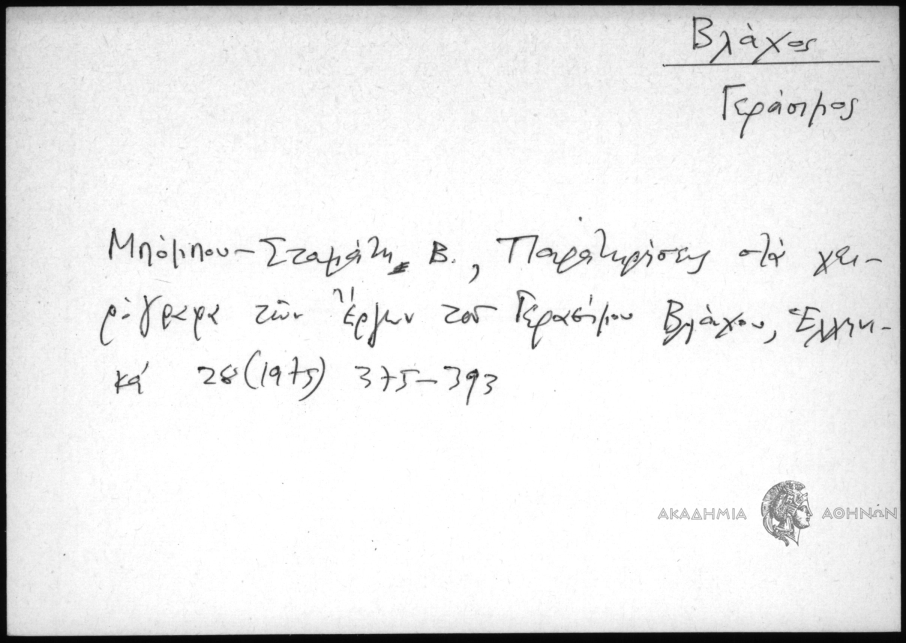 Βλάχος
Γεράσιμος
Μπόμπου-Σταμάτη, Β., Παρατηρήσεις στὰ χει-
ρόγραφα τῶν ἔργων τοῦ Γερασίμου Βλάχου, Ἑλληνι-
κά 28 (1975) 375-393
ΑΚΑΔΗΜΙΑ ΑΘΗΝΩΝ